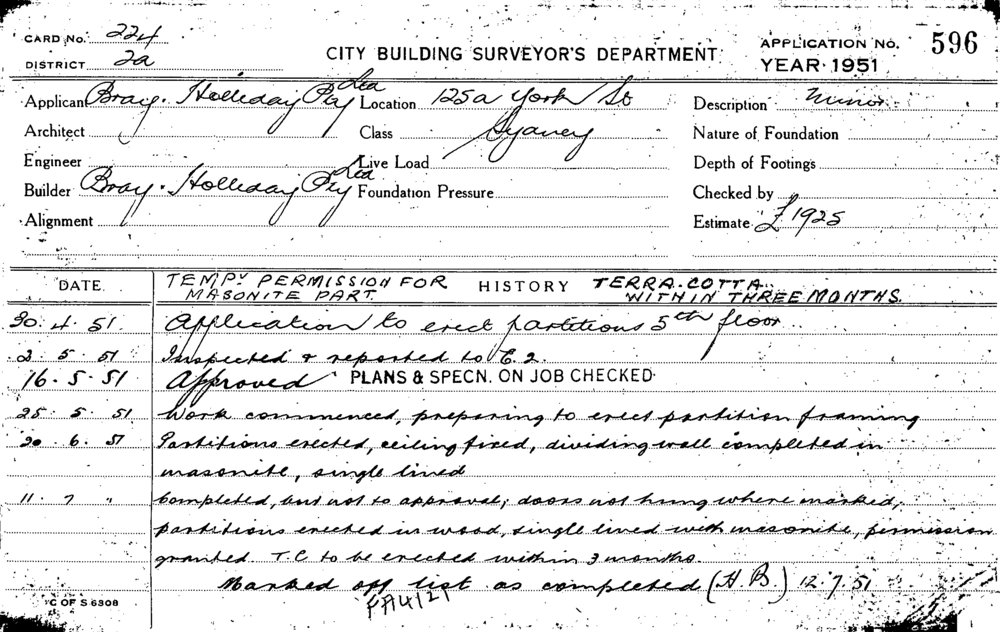 CARD No. 224
DISTRICT 2a
CITY BUILDING SURVEYOR'S DEPARTMENT
APPLICATION No. 596
YEAR 1951
Applicant Bray. Holliday Pty Ltd Location 125a York St Description Minor
Architect Class Sydney Nature of Foundation
Engineer Live Load Depth of Footings
Builder Bray. Holliday Pty Ltd Foundation Pressure Checked by
Alignment Estimate £1925
DATE. TEMPY PERMISSION FOR HISTORY TERRA-COTTA
MASONITE PART. WITHIN THREE MONTHS.
30. 4. 51. Application to erect partitions 5th floor
2. 5. 51 Inspected & reported to E.2.
16. 5. 51 Approved PLANS & SPECN. ON JOB CHECKED
25. 5. 51 Work commenced, preparing to erect partition framing
20. 6. 51 Partitions erected, ceiling fixed, dividing wall completed in
masonite, single lined
11. 7 " Completed, but not to approval; doors not hung where marked,
partitions erected in wood, single lined with masonite, permission
granted T.C to be erected within 3 months.
Marked off list as completed (H B.) 12.7.51
C OF S 6308